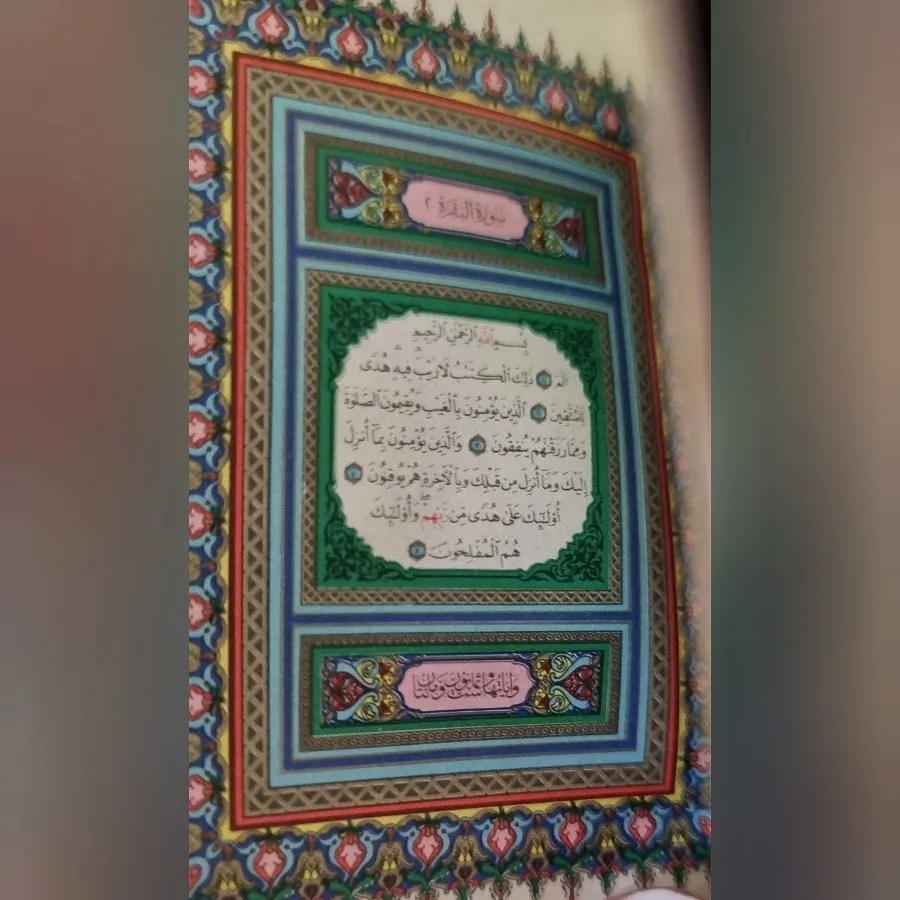 سورة البقرة ٢
بِسْمِ ٱللَّهِ ٱلرَّحْمَٰنِ ٱلرَّحِيمِ
الٓمٓ ١ ذَٰلِكَ ٱلْكِتَٰبُ لَا رَيْبَ ۛ فِيهِ ۛ هُدًى
لِّلْمُتَّقِينَ ٢ ٱلَّذِينَ يُؤْمِنُونَ بِٱلْغَيْبِ وَيُقِيمُونَ ٱلصَّلَوٰةَ
وَمِمَّا رَزَقْنَٰهُمْ يُنفِقُونَ ٣ وَٱلَّذِينَ يُؤْمِنُونَ بِمَآ أُنزِلَ
إِلَيْكَ وَمَآ أُنزِلَ مِن قَبْلِكَ وَبِٱلْءَاخِرَةِ هُمْ يُوقِنُونَ ٤
أُو۟لَٰٓئِكَ عَلَىٰ هُدًى مِّن رَّبِّهِمْ ۖ وَأُو۟لَٰٓئِكَ
هُمُ ٱلْمُفْلِحُونَ ٥
وآياتها ست وثمانون ومائتان